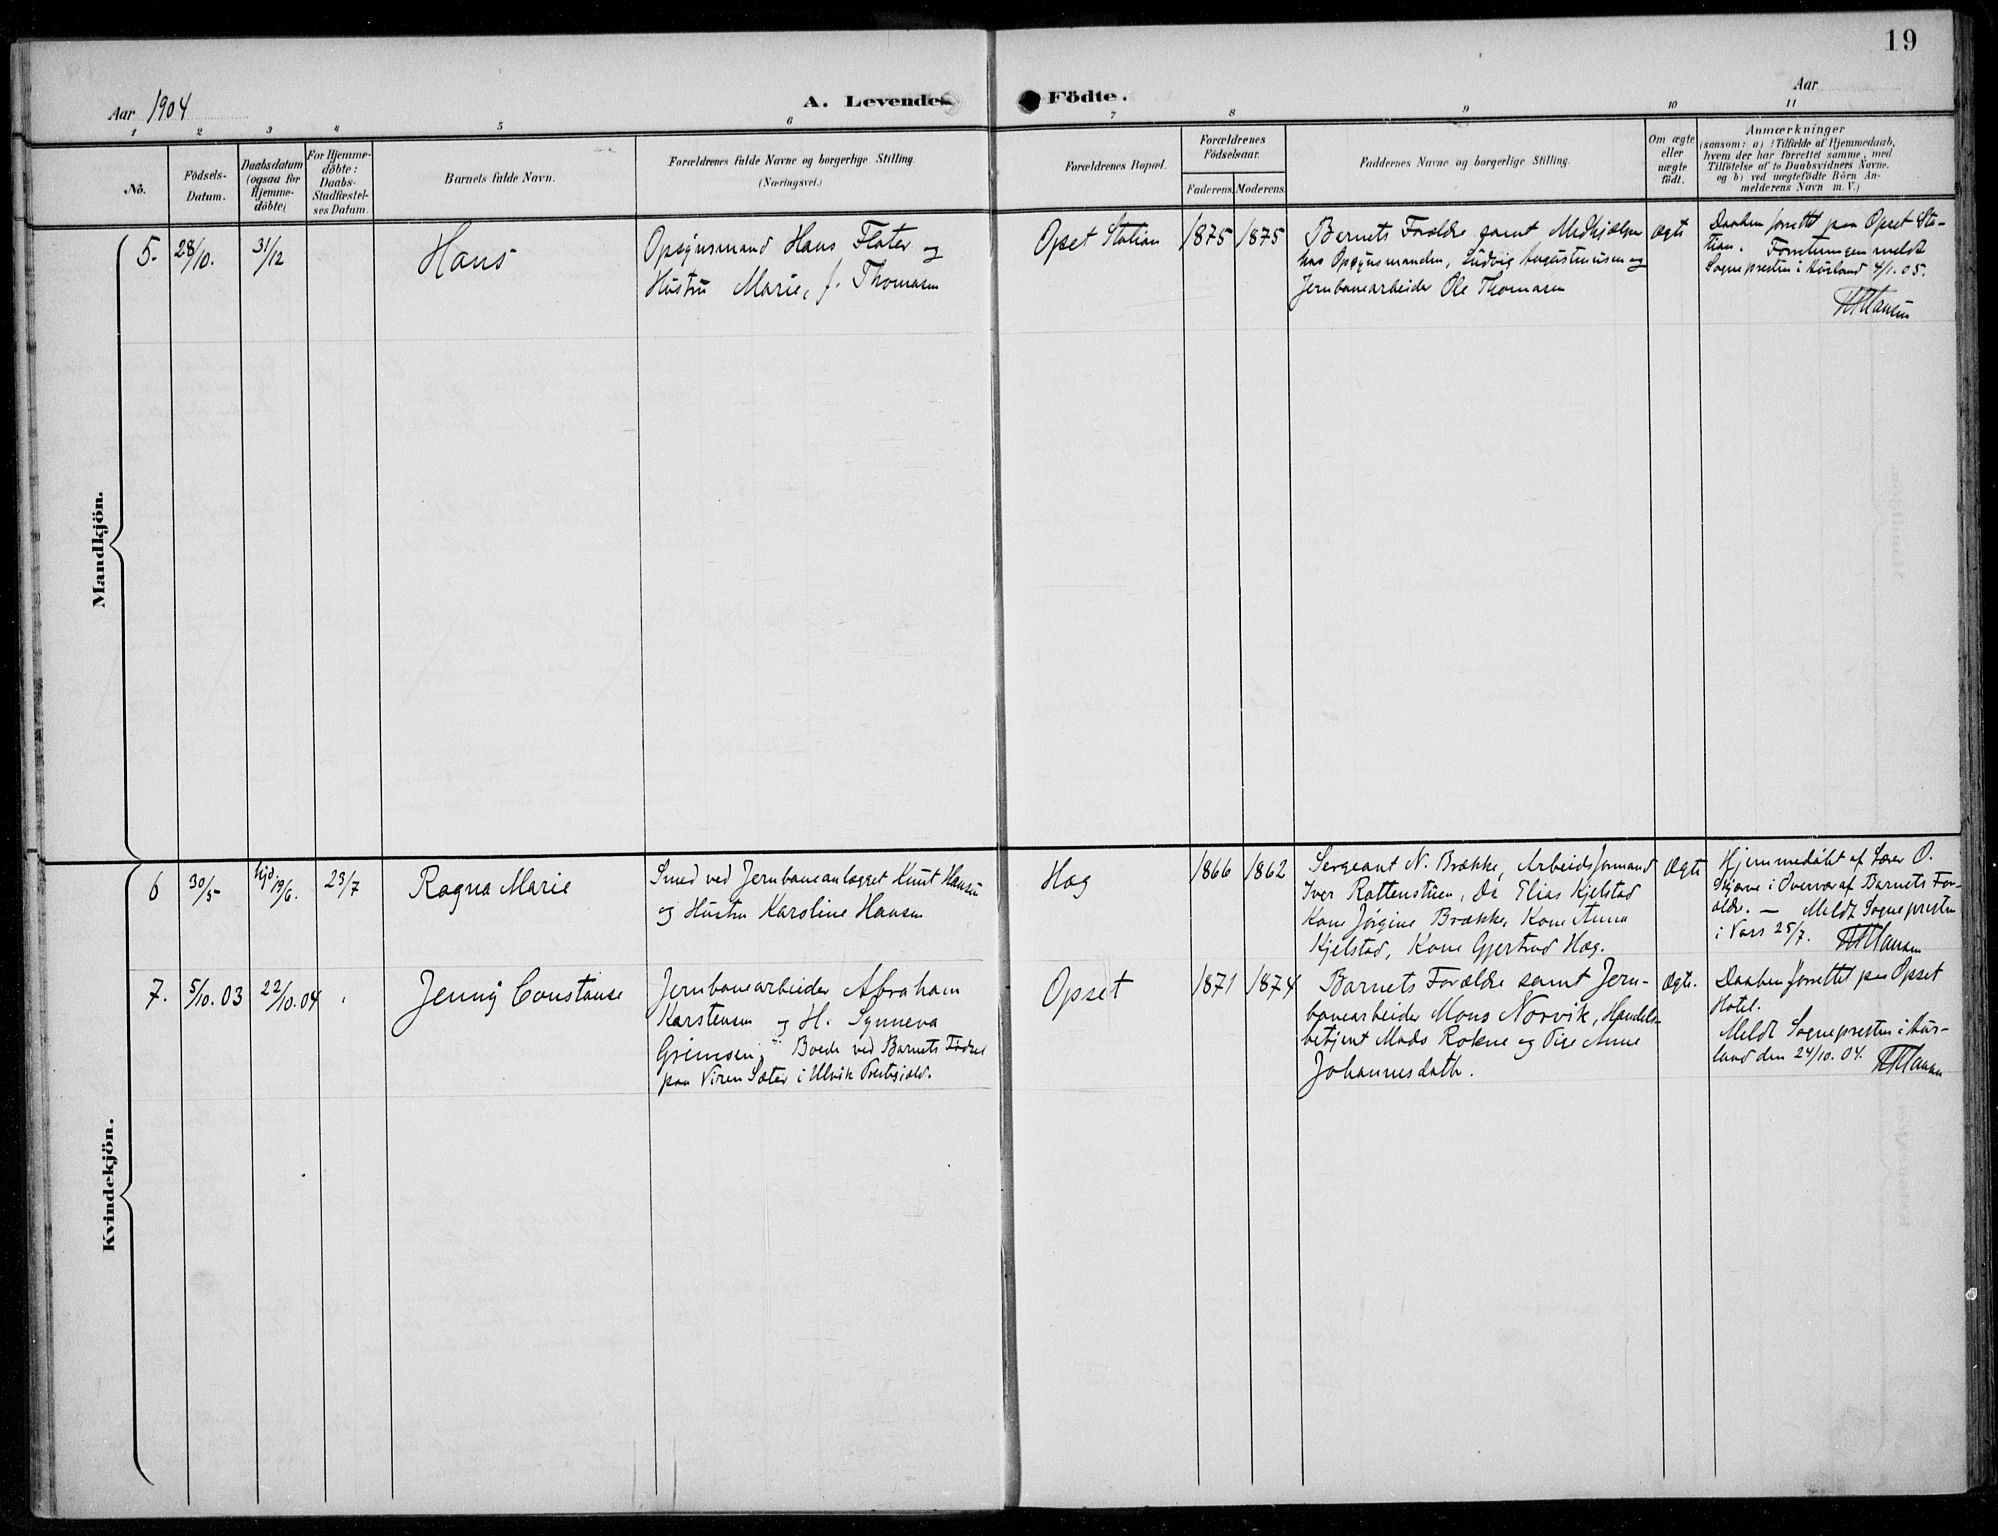 19
Aar 1904
A. Levende
Födte.
Aar
1 2 3 4 5 6 7 8 9 10 11
No.
Födsels-
Datum.
Daabsdatum
(ogsaa for
Hjemme-
döbte)
For Hjemme-
döbte:
Daabs-
Stadfæstel-
ses Datum.
Barnets fulde Navn.
Forældrenes fulde Navne og borgerlige Stilling.
(Næringsvei.)
Forældrenes Bopæl.
Forældrenes
Födselsaar.
Faderens. Moderens.
Faddernes Navne og borgerlige Stilling.
Om ægte
eller
uægte
födt.
Anmærkninger
(saasom: a) i Tilfælde af Hjemmedaab,
hvem der har forrettet samme, med
Tilföielse af to Daabsvidners Navne,
og b) ved uægtefödte Börn An-
melderens Navn m. V.)
Mandkjön.
5. 28/10. 31/12
Hans
Opsynsmand Hans Flater og
Hustru Marie, f. Thomasen
Opset Station
1875 1875
Barnets Forældre samt Medhjælper
hos Opsynsmanden, Ludvig Augustinusen og
Jernbanearbeider Ole Thomasen
ægte
Daaben forrettet paa Opset Sta-
tion. Forretningen meldt
Sognepresten i Aurland 4/1. 05.
Hansen
Kvindekjön.
6 30/5 hjd. 19/6. 23/7
Ragna Marie
Smed ved Jernbaneanlægget Knut Hansen
og Hustru Karoline Hansen
Hag
1866 1862
Sergeant N. Brække, Arbeidsformand
Iver Rattenstuen, Do Elias Kjelstad
Kone Jørgine Brække, Kone Anna
Kjelstad, Kone Gjertrud Hag.
Ægte
Hjemmedøbt af Lærer O.
i Overvær af Barnets For-
ældre. — Meldt Sognepresten
i Vors 25/7. Hansen
7. 5/10. 03 22/10. 04
Jenny Constanse
Jernbanearbeider Abraham
Karstensen og H. Synneva
Grimsen, Boede ved Barnets Fødsel
paa Viren Sæter i Ulvik Prestegjæld.
Opset
1871 1874
Barnets Forældre samt Jern-
banearbeider Mons Norvik, Handels-
betjent Mads Rokne og Pige Anne
Johannesdatter.
Ægte.
Daaben forrettet paa Opset
Hotel.
Meldt Sognepresten i Aur-
land den 24/10. 04. Hansen